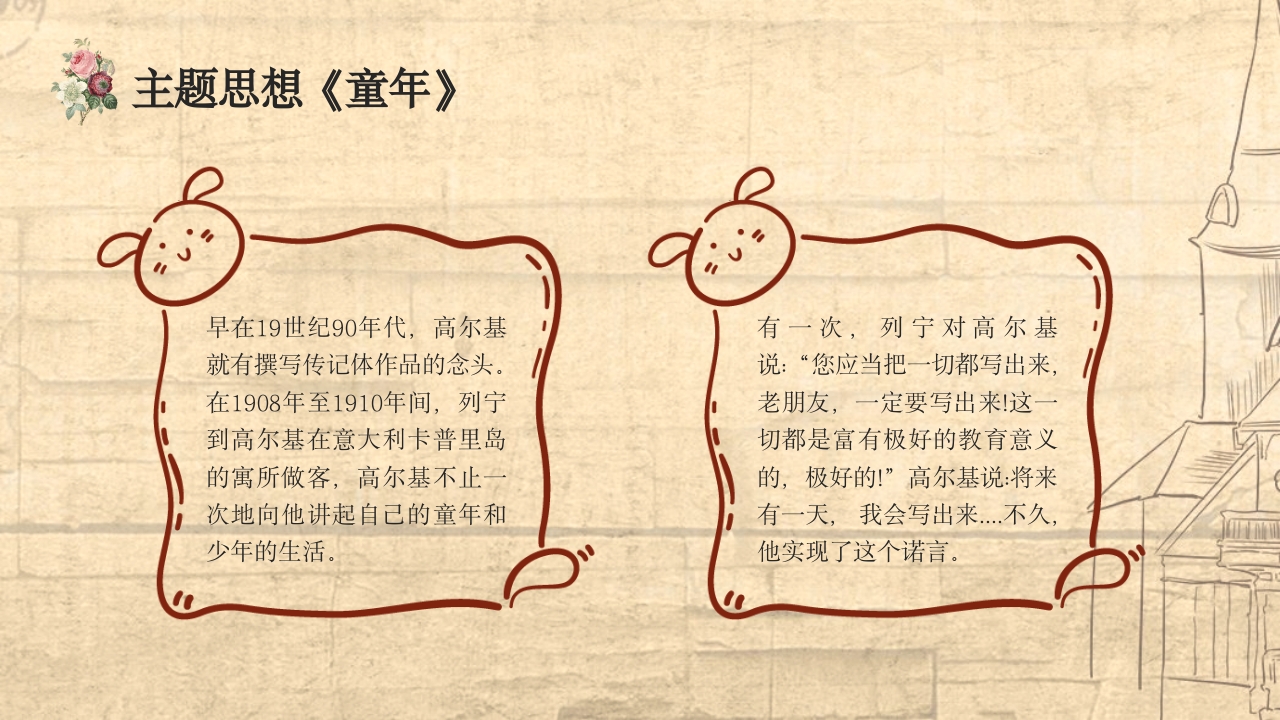 主题思想《童年》
早在19世纪90年代，高尔基
就有撰写传记体作品的念头。
在1908年至1910年间，列宁
到高尔基在意大利卡普里岛
的寓所做客，高尔基不止一
次地向他讲起自己的童年和
少年的生活。
有一次，列宁对高尔基
说：“您应当把一切都写出来，
老朋友，一定要写出来!这一
切都是富有极好的教育意义
的，极好的!”高尔基说:将来
有一天， 我会写出来....不久，
他实现了这个诺言。